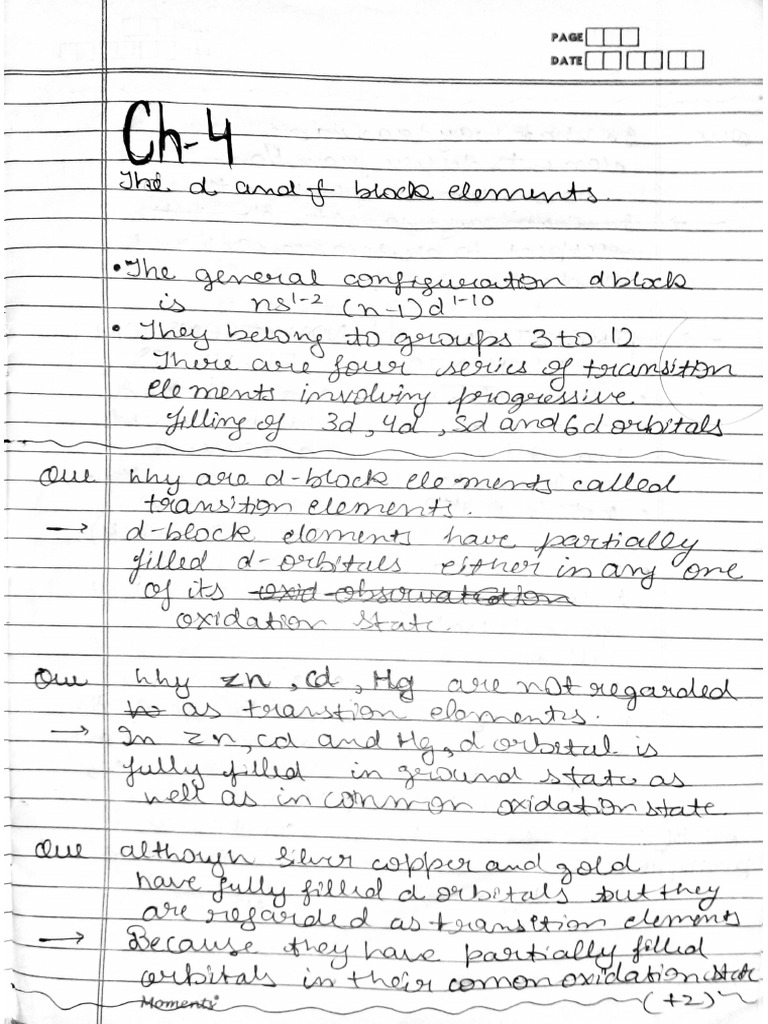 PAGE
DATE
Ch-4
The d and f block elements.
• The general configueration d block
is ns¹⁻² (n-1)d¹⁻¹⁰
• They belong to groups 3 to 12
There are four series of transition
elements involving progressive
filling of 3d, 4d, 5d and 6d orbitals
Que why are d-block elements called
transition elements.
→ d-block elements have partially
filled d-orbitals either in any one
of its oxid observation
oxidation state.
Que why zn, Cd, Hg are not regarded
as transtion elements.
→ In zn, cd and Hg, d orbital is
fully filled in ground state as
well as in common oxidation state.
Que although silver copper and gold
have fully filled d orbitals but they
are regarded as transition elements
→ Because they have partially filled
orbitals in their comon oxidation state
(+2)
Moments